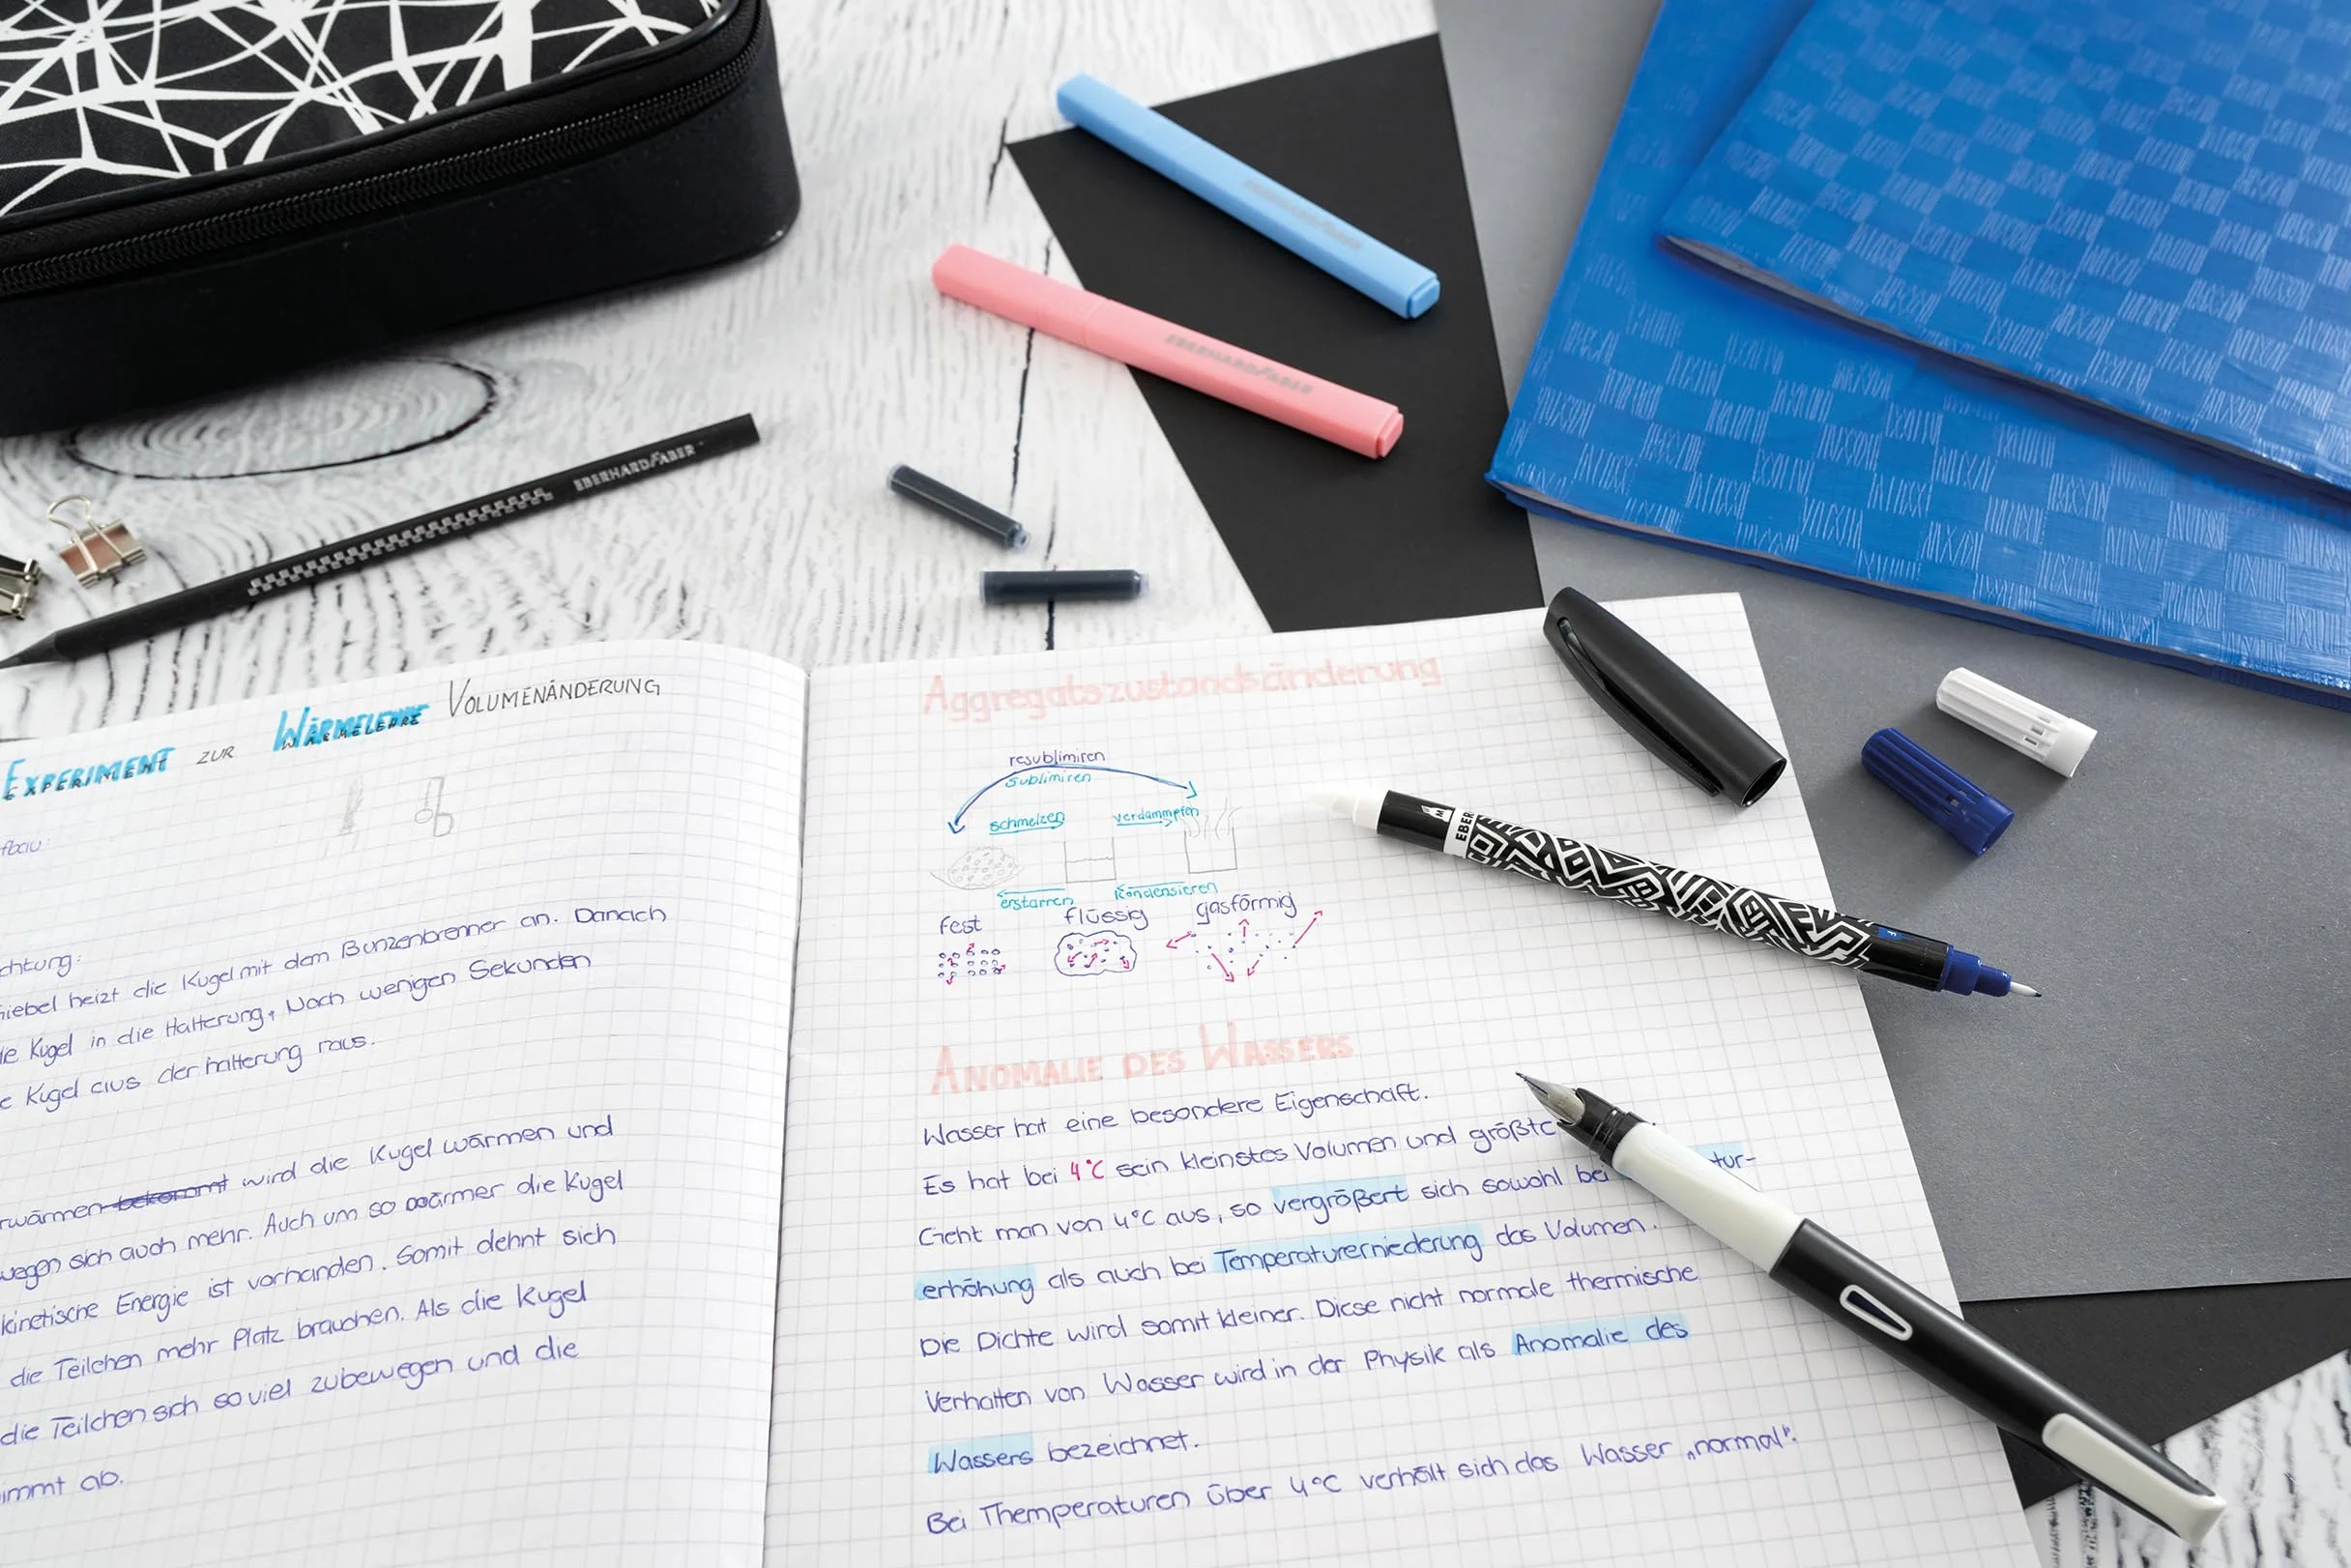 EBERHARD FABER
EBERHARD FABER
EXPERIMENT ZUR WÄRMELEHRE VOLUMENÄNDERUNG
fbau:
chtung:
iebel heizt die Kugel mit dem Bunzenbrenner an. Danach
ie Kugel in die Halterung, Nach wenigen Sekunden
e Kugel aus der halterung raus.
rwärmen bekommt wird die Kugel wärmen und
wegen sich auch mehr. Auch um so wärmer die Kugel
kinetische Energie ist vorhanden. Somit dehnt sich
die Teilchen mehr Platz brauchen. Als die Kugel
die Teilchen sich so viel zubewegen und die
immt ab.
Aggregatszustandsänderung
resublimiren
sublimiren
schmelzen verdammpfen
erstarren kondensieren
fest flüssig gasförmig
ANOMALIE DES WASSERS
Wasser hat eine besondere Eigenschaft.
Es hat bei 4°C sein kleinstes Volumen und größte
Geht man von 4°C aus, so vergrößert sich sowohl bei tur-
erhöhung als auch bei Temperaturerniederung das Volumen.
Die Dichte wird somit kleiner. Diese nicht normale thermische
Verhalten von Wasser wird in der Physik als Anomalie des
Wassers bezeichnet.
Bei Themperaturen über 4°C verhält sich das Wasser „normal".
M EBER